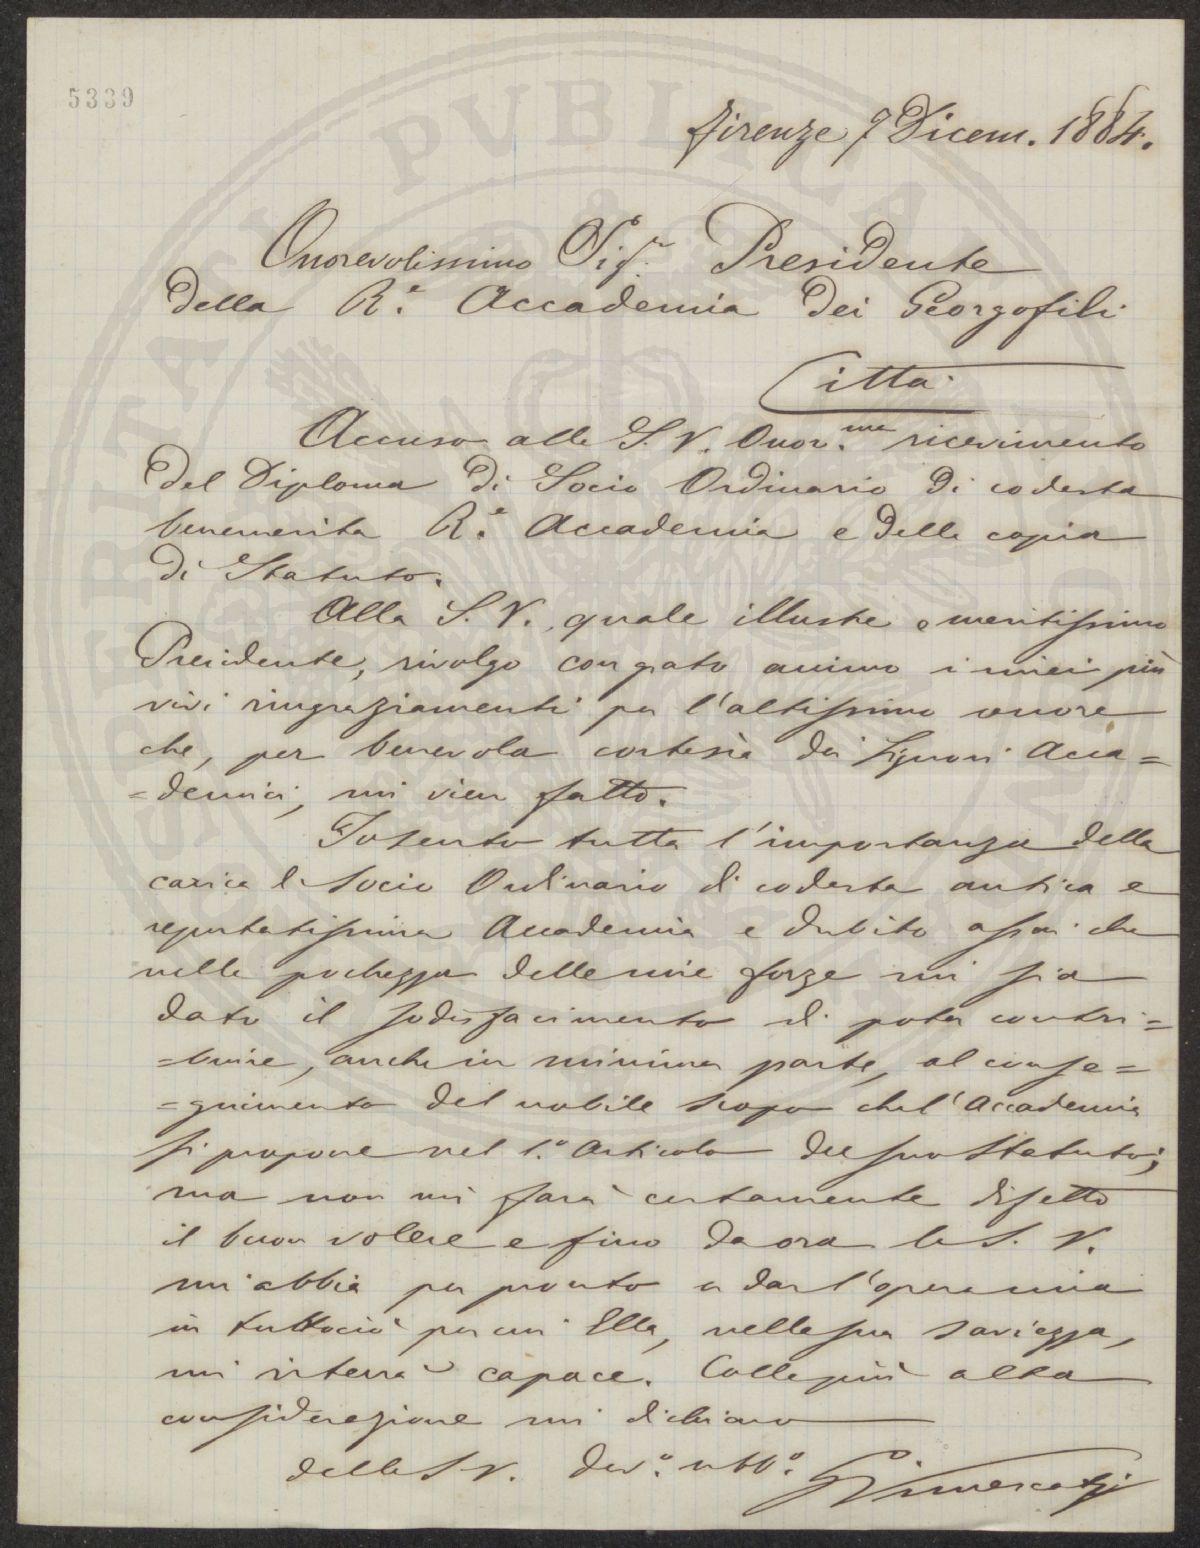 5339
Firenze 9 Dicem. 1884.
Onorevolissimo Sig.r Presidente
della R.e Accademia dei Georgofili
Città
Accuso alla S.V. Onor.me ricevimento
del Diploma di Socio Ordinario di codesta
benemerita R.e Accademia e della copia
di Statuto.
Alla S.V., quale illustre e meritissimo
Presidente, rivolgo con grato animo i miei più
vivi ringraziamenti per l'altissimo onore
che, per benevola cortesia dei Signori Acca=
=demici, mi vien fatto.
Io sento tutta l'importanza della
carica di Socio Ordinario di codesta antica e
reputatissima Accademia e dubito assai che
nella pochezza delle mie forze mi sia
dato il sodisfacimento di poter contri=
=buire, anche in minima parte, al conse=
=guimento del nobile scopo che l'Accademia
si propone nel 1.o Articolo del suo Statuto;
ma non mi farà certamente difetto
il buon volere e fino da ora la S.V.
mi abbia per pronto a dar l'opera mia
in tuttociò per cui Ella, nella sua saviezza,
mi riterrà capace. Colla più alta
considerazione mi dichiaro
della S.V. dev.o obb.o
G Vimercati
PVBLICA
PROSPERITATI